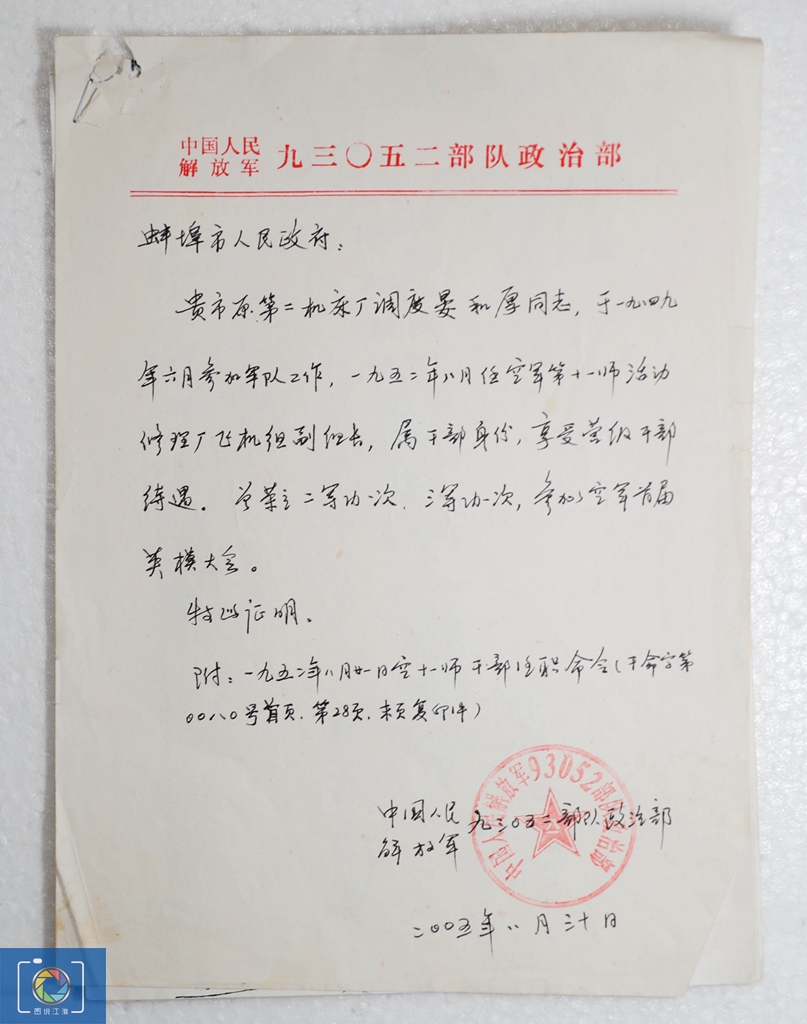 中国人民
解放军 九三〇五二部队政治部
蚌埠市人民政府：
贵市原第二机床厂调度晏和厚同志，于一九四九
年六月参加军队工作，一九五二年八月任空军第十一师活动
修理厂飞机组副组长，属干部身份，享受营级干部
待遇。曾荣立二等功一次，三等功一次，参加了空军首届
英模大会。
特此证明。
附：一九五二年八月廿一日空十一师干部任职命令（干命字第
00八0号首页、第28页、末页复印件）
中国人民
解放军 九三0五二部队政治部
中国人民解放军93052部队政治部
二00五年八月三十日
图说江淮